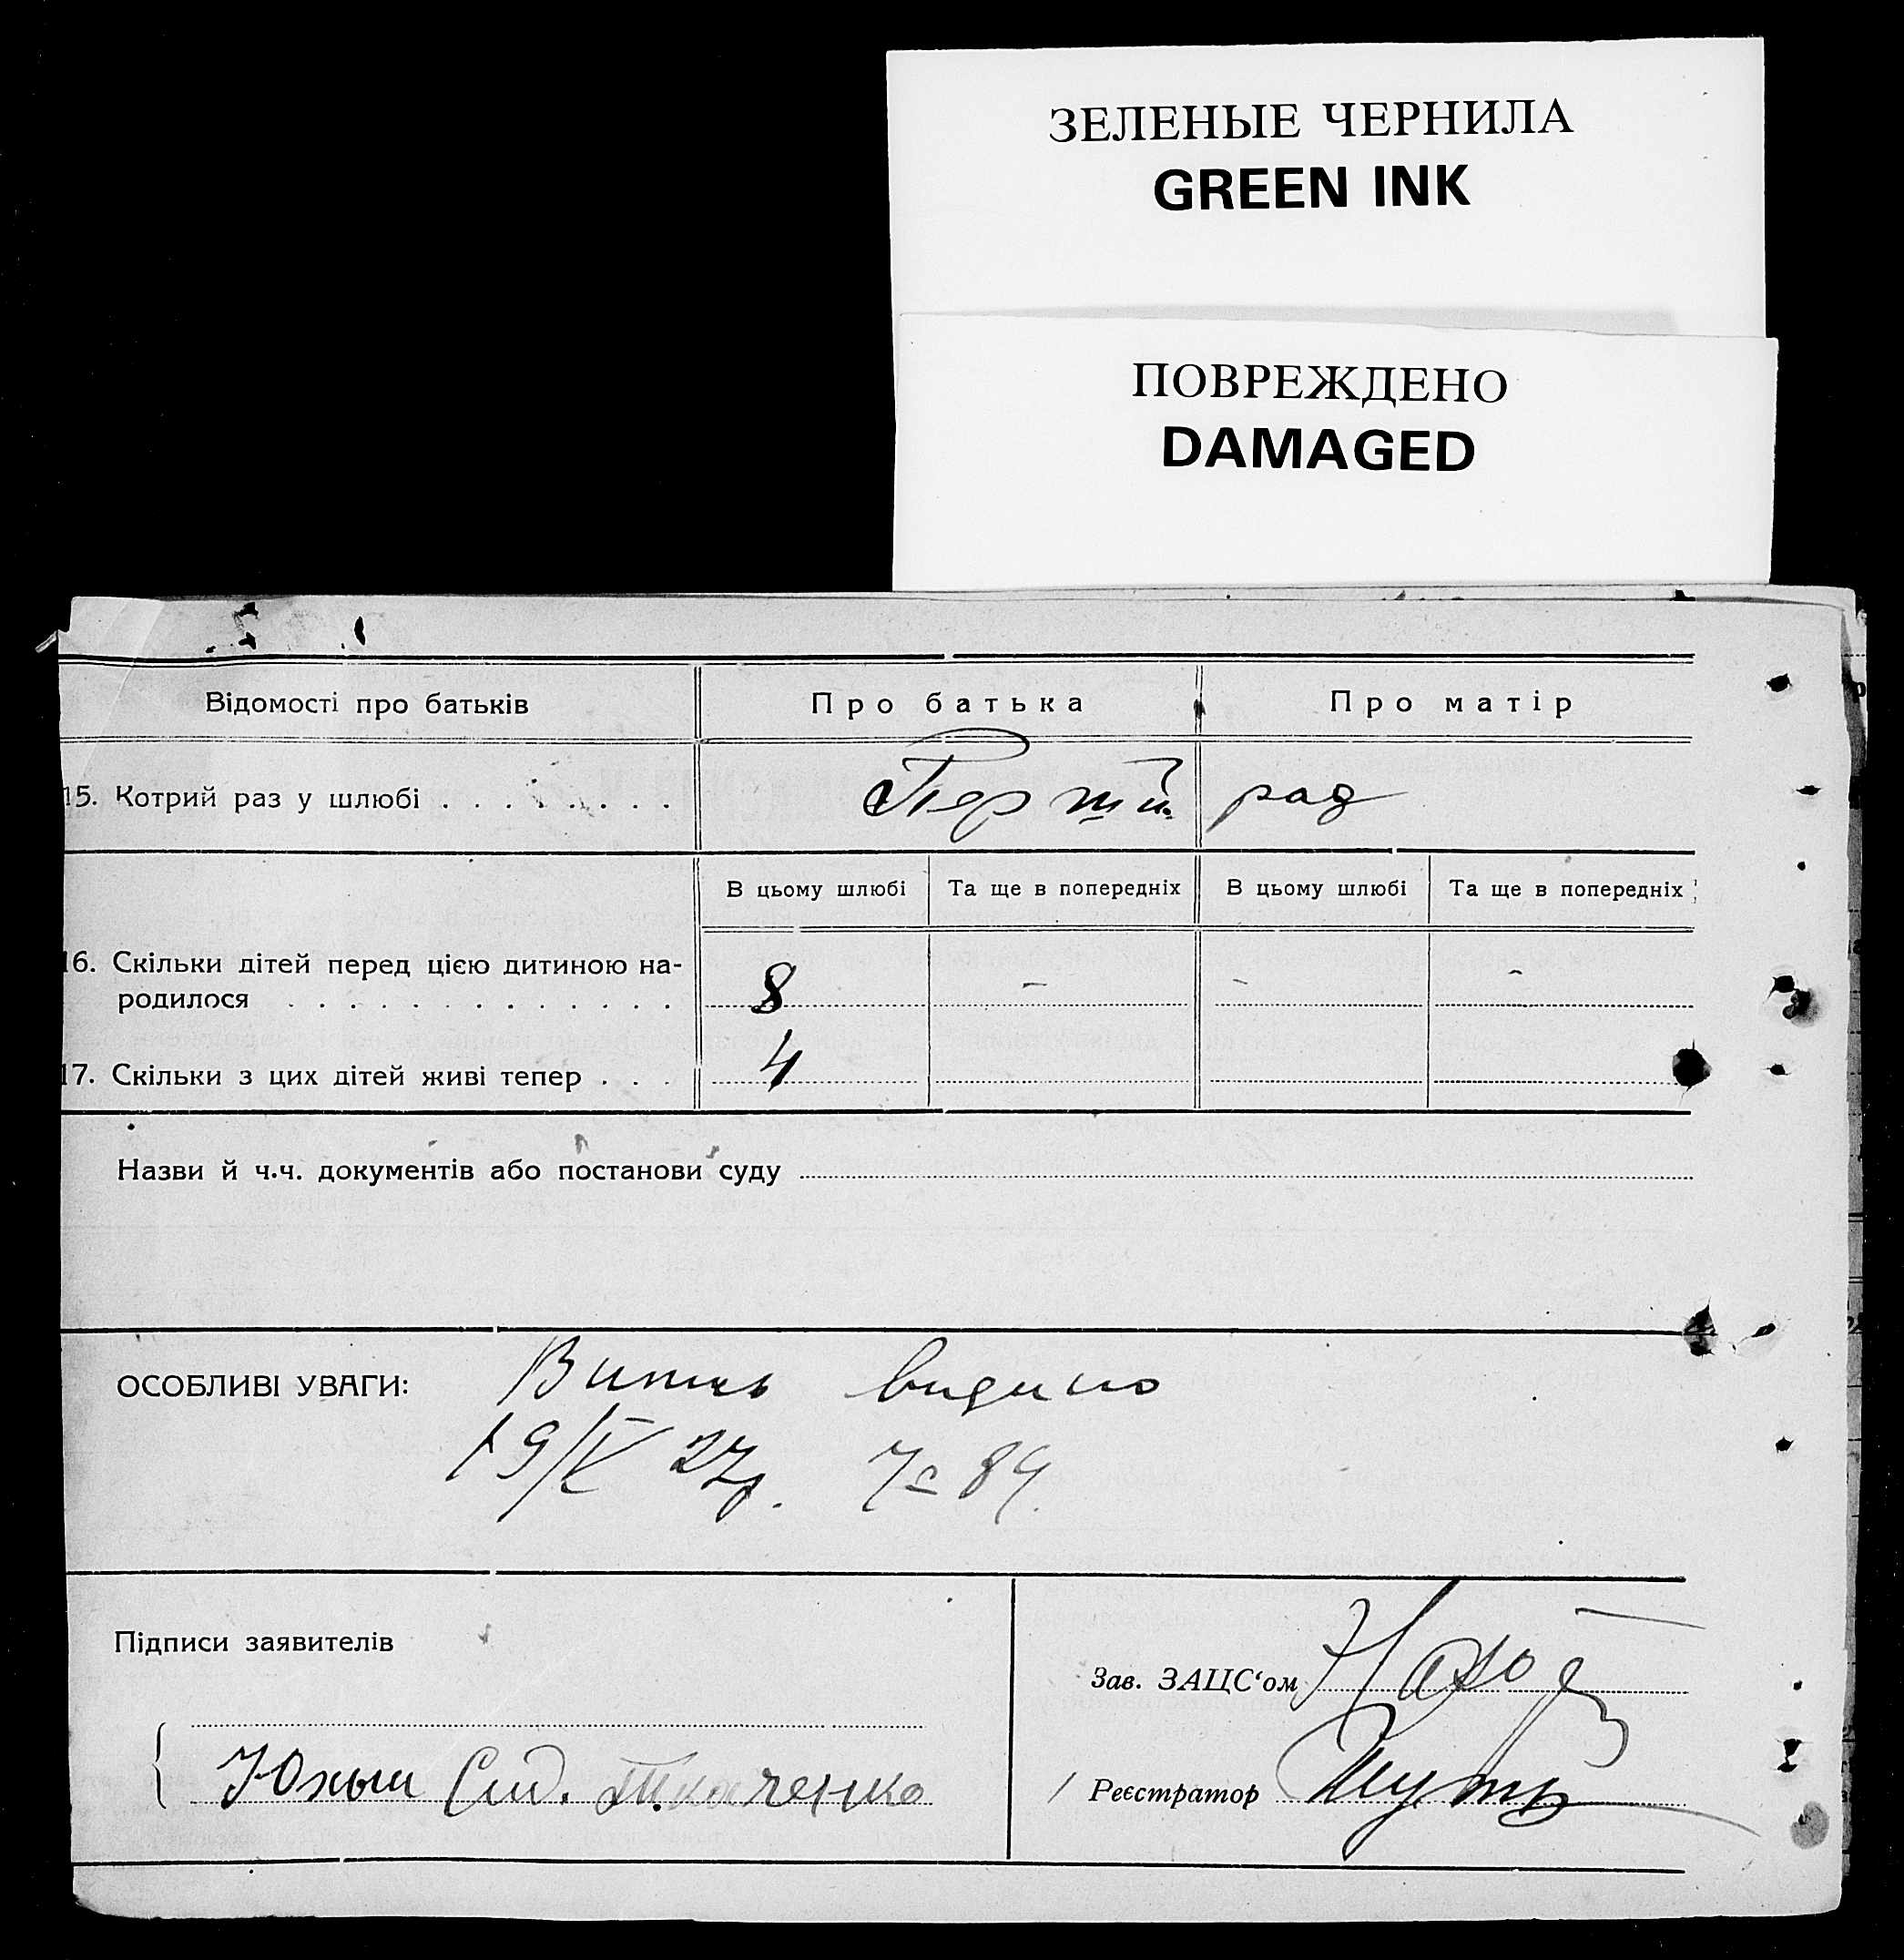 ЗЕЛЕНЫЕ ЧЕРНИЛА
GREEN INK
ПОВРЕЖДЕНО
DAMAGED
Відомості про батьків Про батька Про матір
15. Котрий раз у шлюбі . . . . . . . . Перший раз
В цьому шлюбі Та ще в попередніх В цьому шлюбі Та ще в попередніх
16. Скільки дітей перед цією дитиною на-
родилося . . . . . . . . . . . . . 8 - - -
17. Скільки з цих дітей живі тепер . . . 4
Назви й ч.ч. документів або постанови суду
ОСОБЛИВІ УВАГИ: Витяг видано
19/V 27р. 84.
Підписи заявителів
Зав. ЗАЦС‘ом
Юхым Сид. Ткаченко
Реєстратор